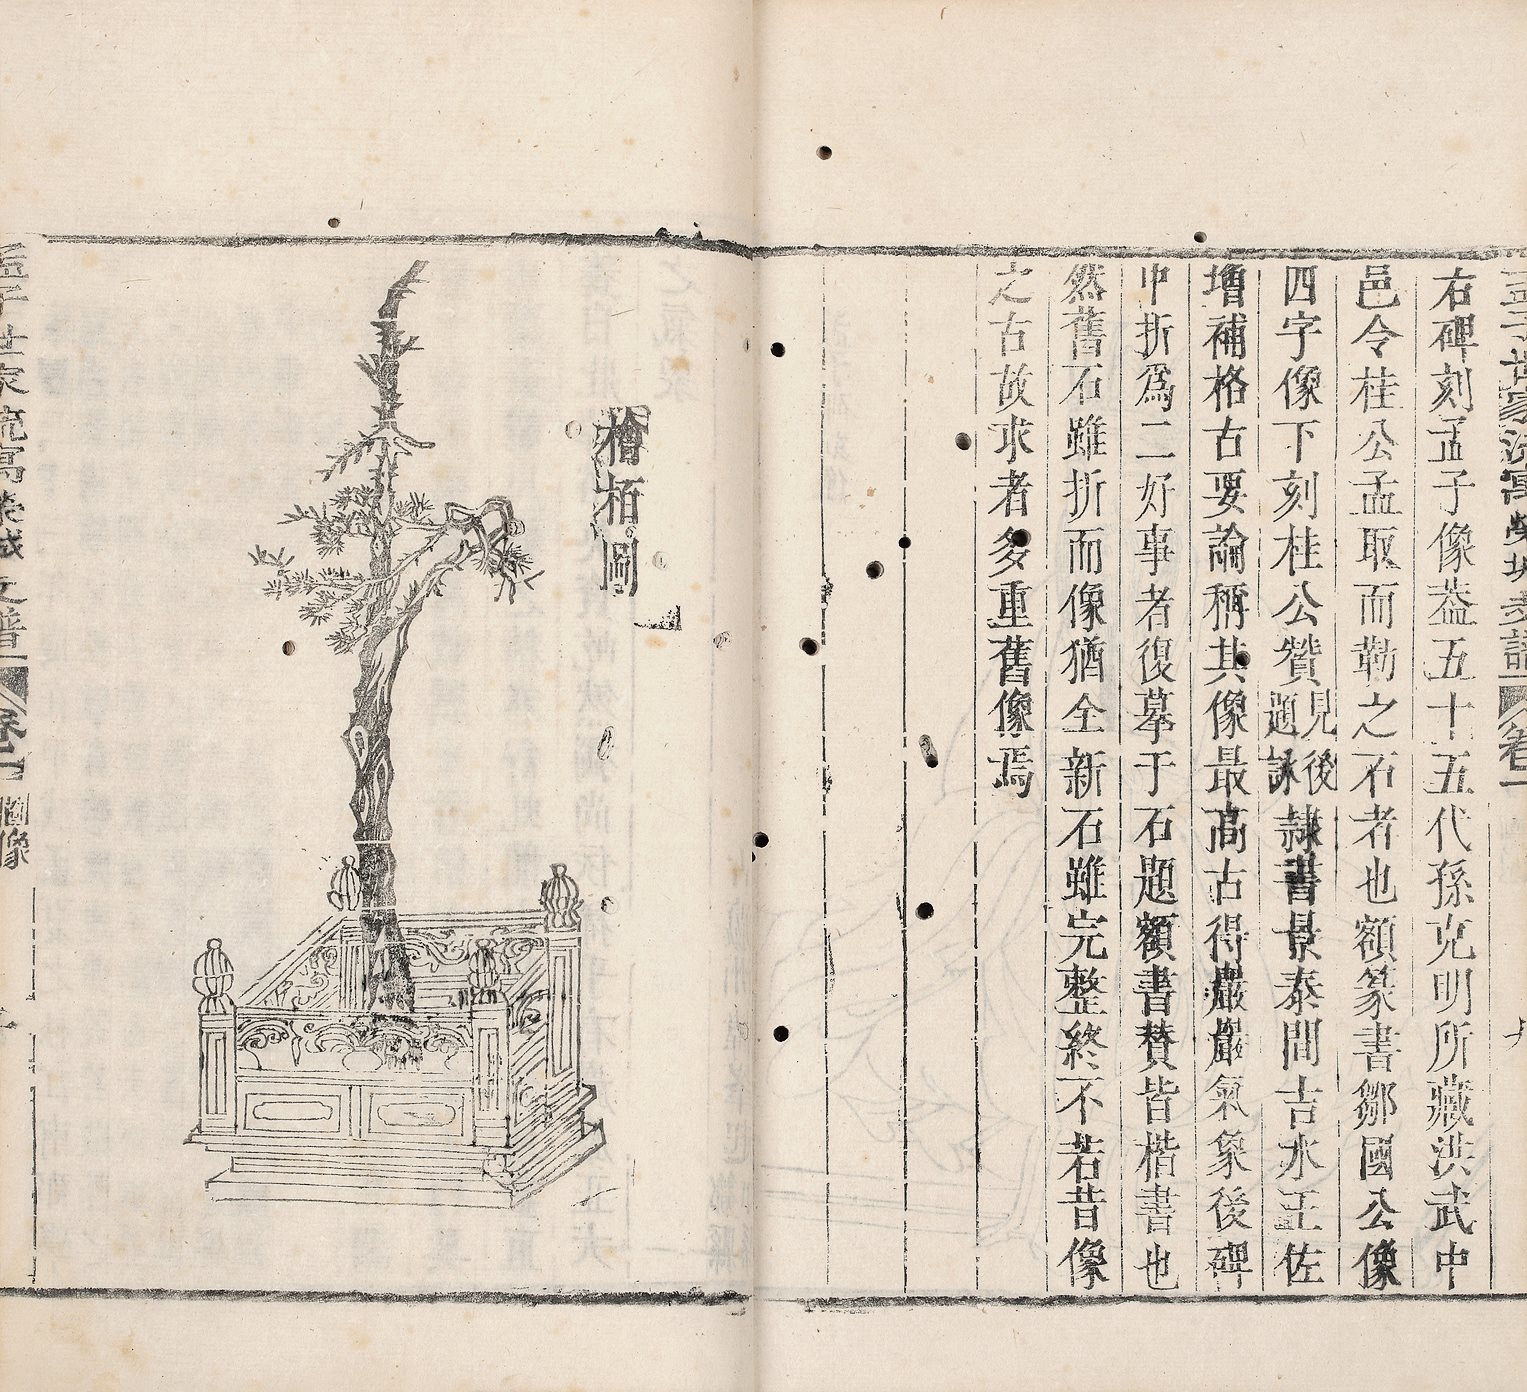 右碑刻孟子像葢五十五代孫克明所藏洪武中
邑令桂公孟取而勒之石者也額篆書鄒國公像
四字像下刻桂公贊見後題詠隷書景泰間吉水王佐
增補格古要論稱其像最高古得巖巖氣象後碑
中折爲二好事者復摹于石題額書贊皆楷書也
然舊石雖折而像猶全新石雖完整終不若昔像
之古故求者多重舊像焉
檜栢圖
孟子世家流寓榮城支譜
卷一
圖像